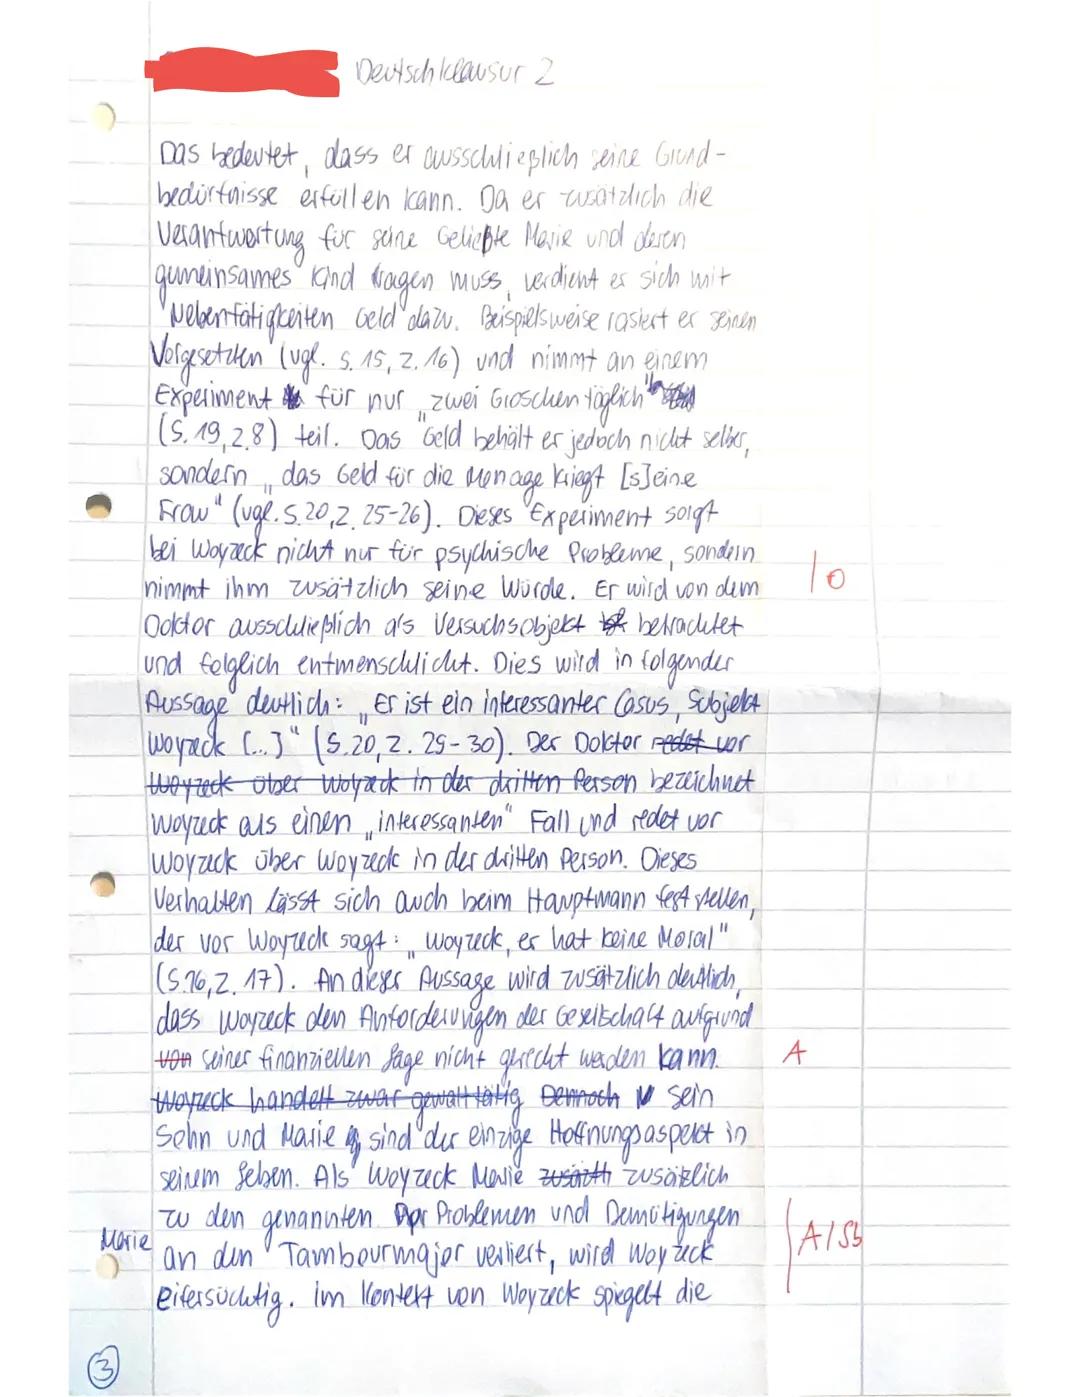 Deutschklausur 2
Das bedeutet, dass er ausschließlich seine Grund-
bedürfnisse erfüllen kann. Da er zusätzlich die
Verantwortung für seine Geließte Marie und deren
gemeinsames Kind tragen muss, verdient er sich mit
Nebentätigkeiten Geld dazu. Beispielsweise rasiert er seinen
Vorgesetzten (vgl. S. 15, Z. 16) und nimmt an einem
Experiment für nur „zwei Groschen täglich"
(S. 19, Z.8) teil. Das Geld behält er jedoch nicht selber,
sondern „das Geld für die Menage kriegt [s]eine
Frau" (vgl. S. 20, Z. 25-26). Dieses Experiment sorgt
bei Woyzeck nicht nur für psychische Probleme, sondern
nimmt ihm zusätzlich seine Würde. Er wird von dem
Doktor ausschließlich als Versuchsobjekt betrachtet
und folglich entmenschlicht. Dies wird in folgender
Aussage deutlich: „Er ist ein interessanter Casus, Subjekt
Woyzeck (...)" (S.20, Z. 29-30). Der Doktor redet vor
Woyzeck über Woyzeck in der dritten Person bezeichnet
Woyzeck als einen „interessanten" Fall und redet vor
Woyzeck über Woyzeck in der dritten Person. Dieses
Verhalten lässt sich auch beim Hauptmann feststellen,
der vor Woyzeck sagt: „Woyzeck, er hat keine Moral"
(S.16, Z. 17). An dieser Aussage wird zusätzlich deutlich,
dass Woyzeck den Anforderungen der Gesellschaft aufgrund
von seiner finanziellen Lage nicht gerecht werden kann.
Woyzeck handelt zwar gewalttätig Dennoch sein
Sohn und Marie sind der einzige Hoffnungsaspekt in
seinem Leben. Als Woyzeck Marie zusätzlich
zu den genannten Problemen und Demütigungen
Marie
an den Tambourmajor verliert, wird Woyzeck
eifersüchtig. Im Kontext von Woyzeck spiegelt die
A
A/Sb
3